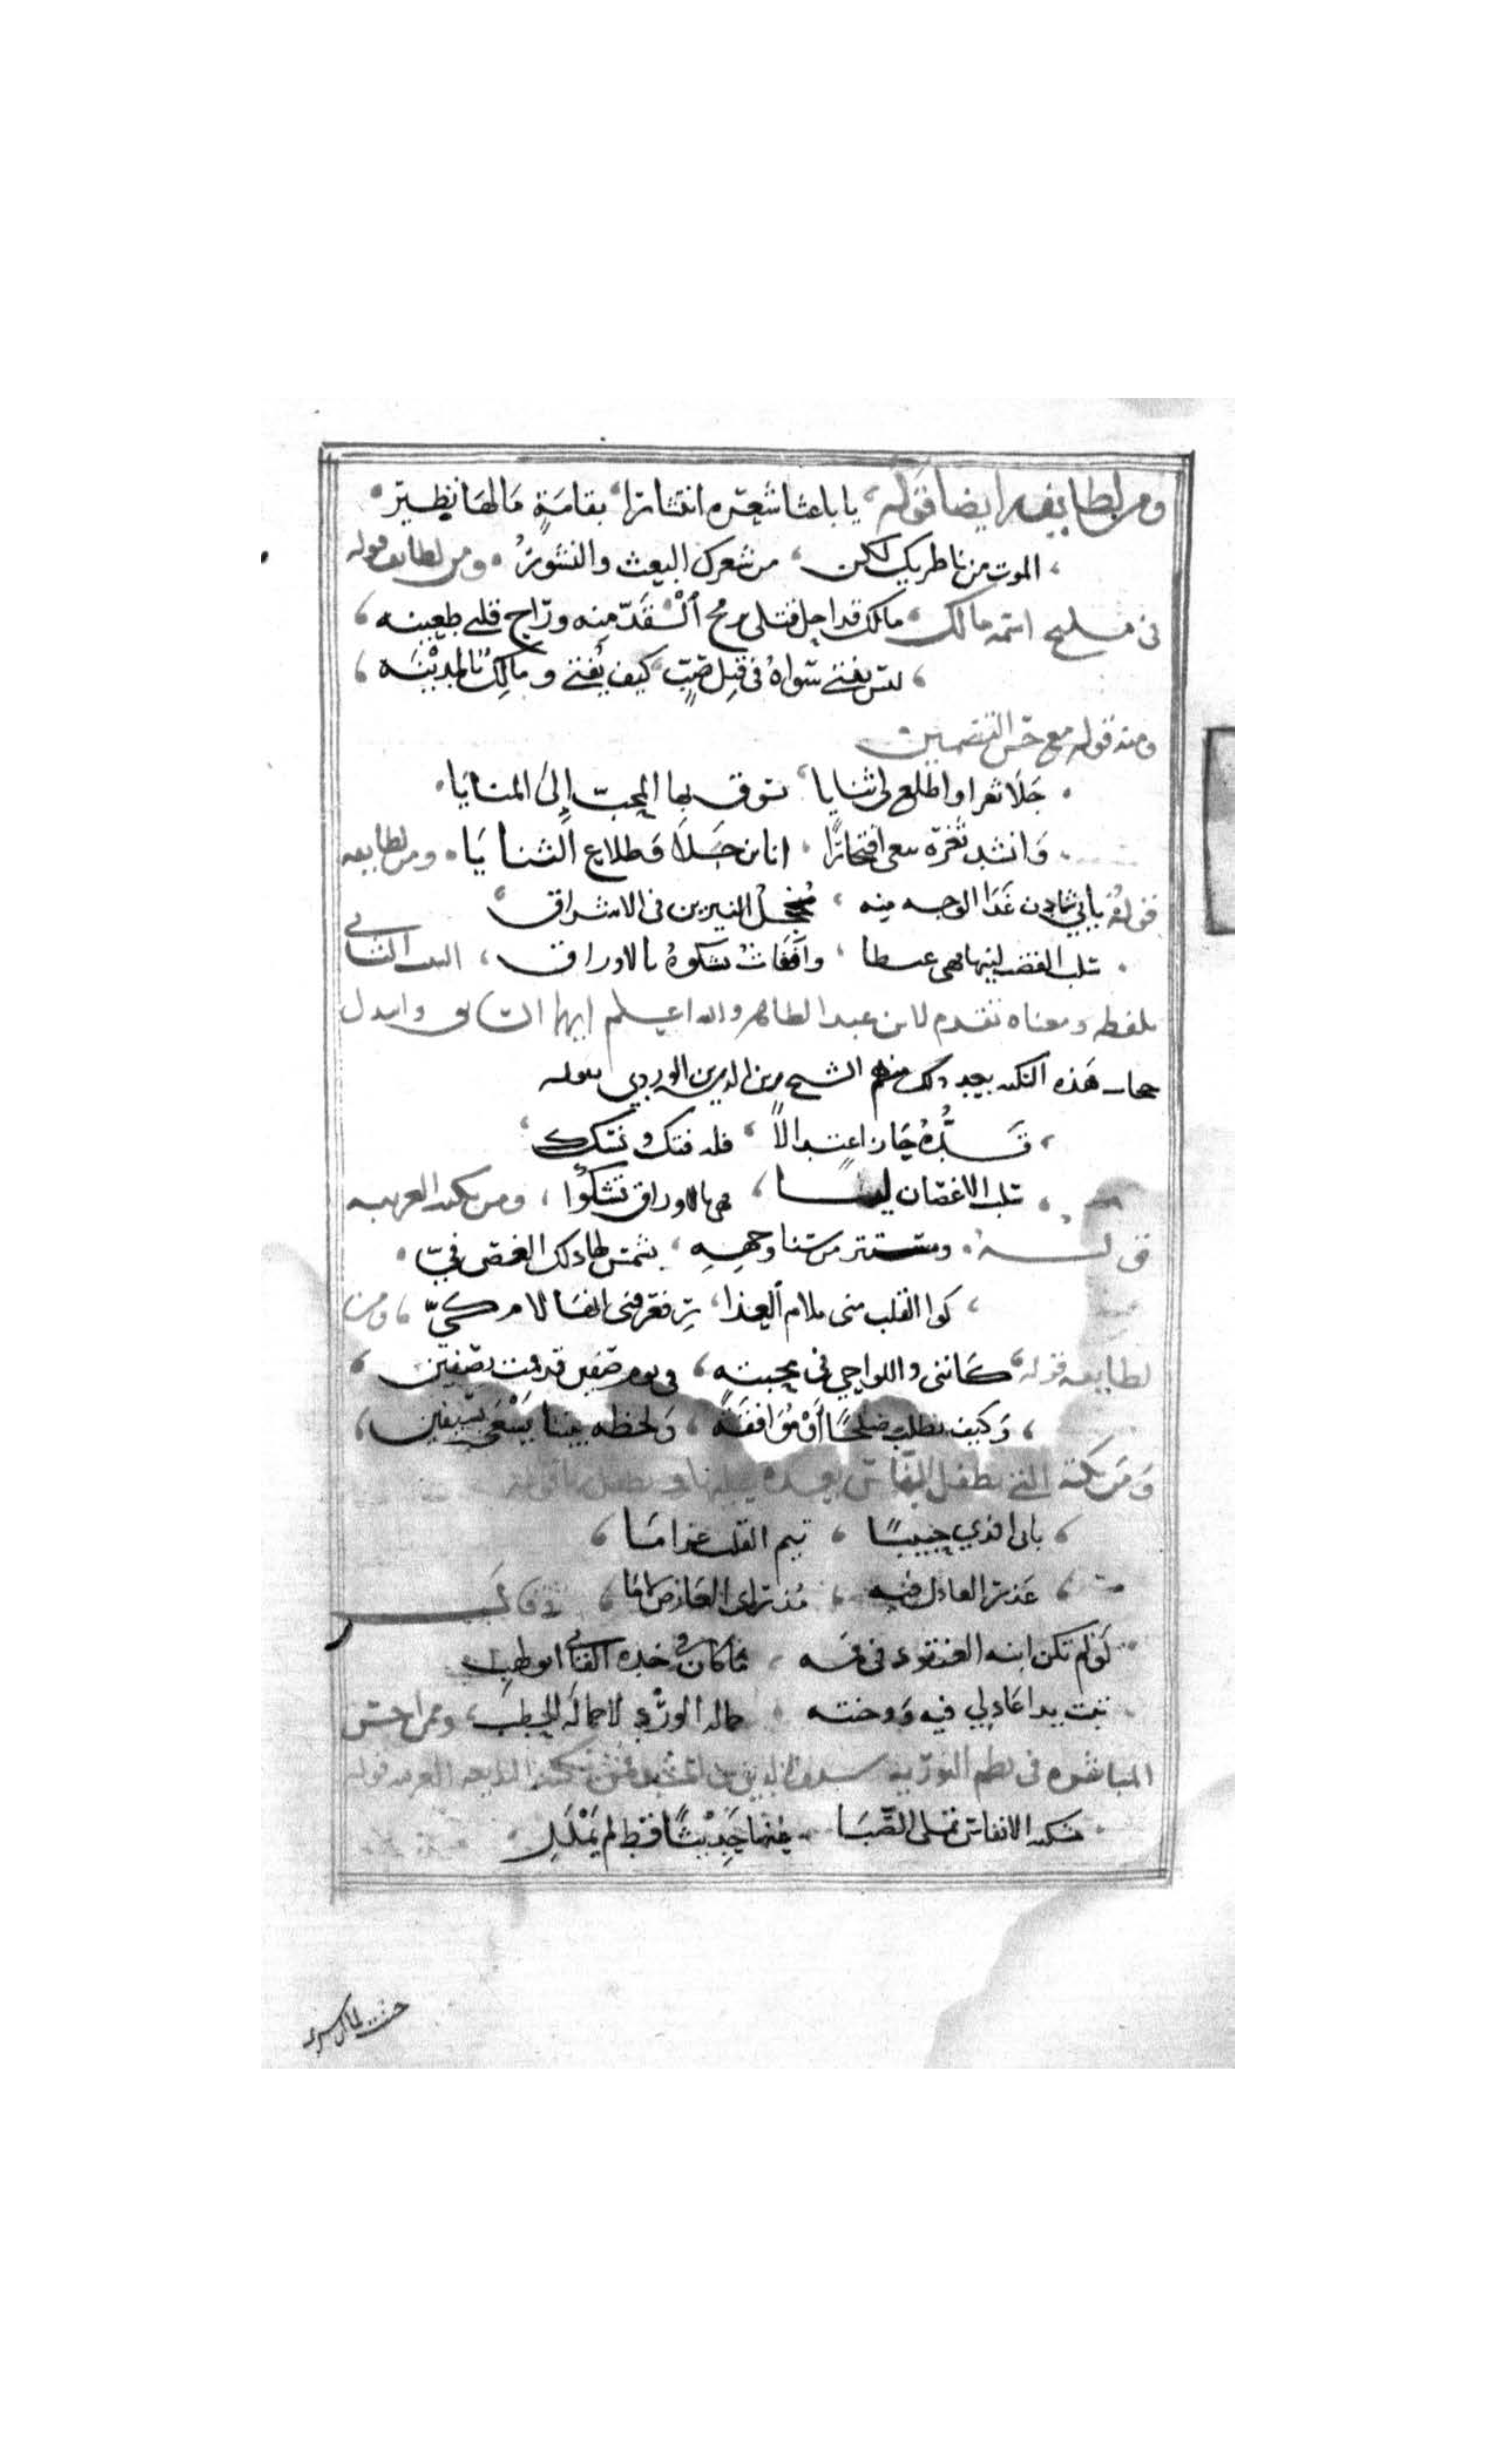 ومن لطايفه ايضا قوله يا باعثا شعره انتشارا بقامة مالها نظير
الموت من ناظريك لكن من شعرك البعث والنشور ومن لطايفه قوله
في مليح اسمه مالك مالك قد احل قتلي برمح القد منه وراح قلبي طعينه
ليس يفتي سواه في قتل صب كيف يفتي ومالك بالمدينه
ومنه قوله مع حسن التضمين
جلا ثغرا واطلع لي ثنايا يسوق بها المحب إلى المنايا
وانشد ثغره يبغي افتخارا انا ابن جلا وطلاع الثنايا ومن لطايفه
قوله بابي شادن غدا الوجه منه مخجل النيرين في الاشراق
سلب القضب لينها فهي غيظا واقفات تشكوه بالاوراق البيت الثاني
بلفظه ومعناه تقدم لابن عبد الظاهر والله اعلم ايهما
هذه النكته بعد ذلك منهم الشيخ زين الدين بن الوردي بقوله
قده حاز اعتدالا فله فتك ونسك
سلب الاغصان لينا فهي بالاوراق تشكوا ومن نكته الغريبه
قوله ومستتر من سنا وجهه بشمس لها ذلك الصدغ في
كوا القلب مني بلام العذار فعرفني انها لام كي ومن
لطايفه قوله كانني واللواحي في محبته في يوم صفين قد قمت بصفين
وكيف يطلب صلحا أو موافقة ولحظه بيننا يسعى بسيفين
ومن نكته التي تطفل الناس بعده عليها
بابي افدي حبيبا تيم القلب غراما
عذر العاذل فيه مذ راى العارض لاما وقال
لو لم تكن ابنة العنقود في فمه ما كان في خده القاني ابو لهب
تبت يدا عاذلي فيه ووجنته حمالة الورد لا حمالة الحطب ومن احسن
المباشره في نظم التوريه سيف الدين بن المشد فمن نكته البديعه الغريبه قوله
مسكية الانفاس تملي الصبا عنها حديثا قط لم يملل